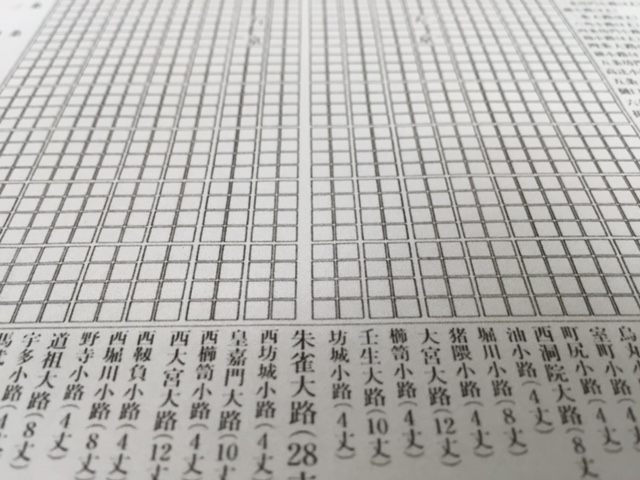 室町小路(4
町尻小路(4
西洞院大路(8丈
油小路(4丈
堀川小路(8丈)
猪隈小路(4丈)
大宮大路(12丈)
櫛笥小路(4丈)
壬生大路(10丈)
坊城小路(4丈)
朱雀大路(28丈
西坊城小路(4丈
皇嘉門大路(10丈
西櫛笥小路(4丈)
西大宮大路(12丈
西靱負小路(4丈)
西堀川小路(8丈)
野寺小路(4丈)
道祖大路(8丈)
宇多小路(4